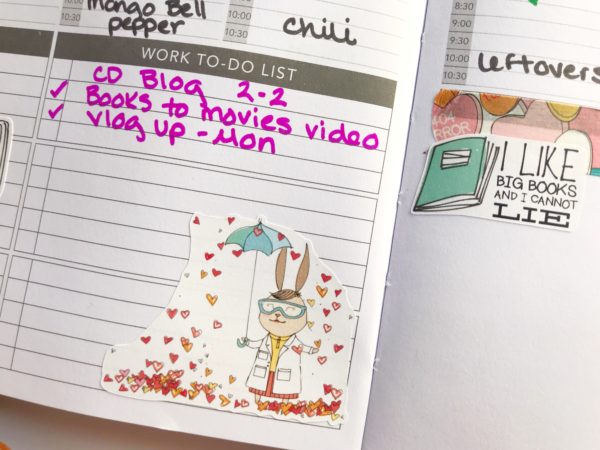 mango Bell
pepper
10:00
10:30
chili
10:30
WORK TO-DO LIST
CD Blog 2-2
✓ Books to movies video
✓ vlog up - Mon
8:30
9:00
9:30
10:00
10:30
Leftovers
404
I LIKE
BIG BOOKS
AND I CANNOT
LIE